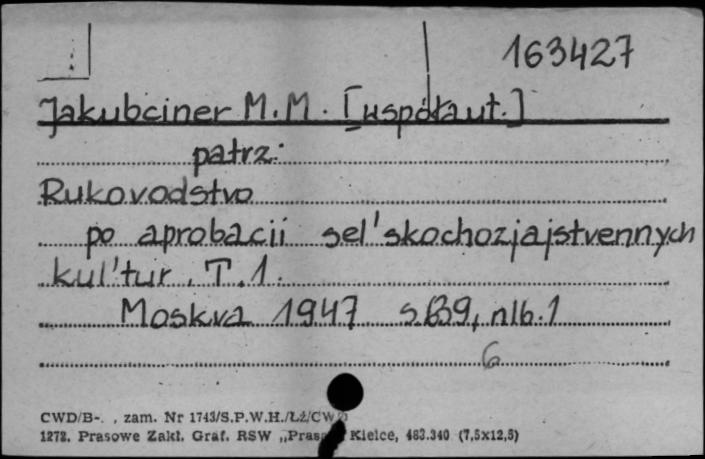 163427
Jakubciner M.M. [współaut.]
patrz:
Rukovodstvo
po aprobacii sel'skochozjajstvennych
kul'tur. T.1.
Moskva 1947 s.639, nlb.1
6
CWD/B-. , zam. Nr 1743/S.P.W.H./Łż/CW
1272. Prasowe Zakł. Graf. RSW „Prasa" Kielce, 483.340 (7,5x12,5)